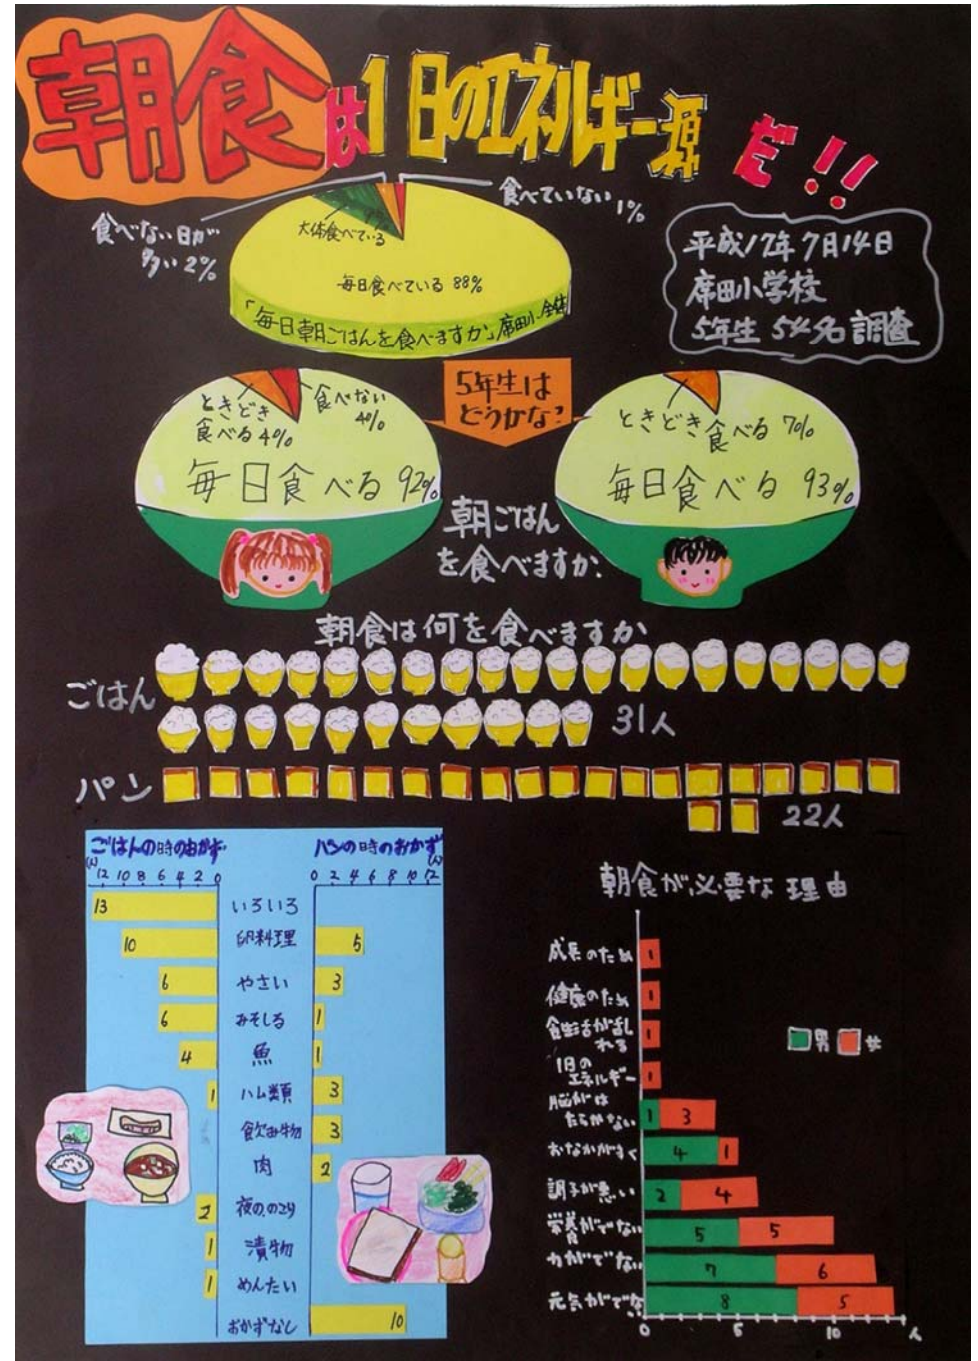 朝食は1日のエネルギー源だ!!
食べていない1%
食べない日が
多い2%
大体食べている
9%
毎日食べている 88%
「毎日朝ごはんを食べますか」席田小全体
平成17年7月14日
席田小学校
5年生 54名調査
5年生は
どうかな?
ときどき
食べる4%
食べない
4%
毎日食べる 92%
ときどき食べる 7%
毎日食べる 93%
朝ごはん
を食べますか.
朝食は何を食べますか
ごはん
31人
パン
22人
ごはんの時のおかず
(人)
12 10 8 6 4 2 0
パンの時のおかず
(人)
0 2 4 6 8 10 12
13 いろいろ
10 卵料理 5
6 やさい 3
6 みそしる 1
4 魚 1
1 ハム類 3
飲み物 3
肉 2
2 夜ののこり
1 漬物
1 めんたい
おかずなし 10
朝食が必要な理由
男 女
成長のため 1
健康のため 1
食生活が乱
れる 1
1日の
エネルギー 1
脳がは
たらかない 1 3
おなかがすく 4 1
調子が悪い 2 4
栄養がでない 5 5
力がでない 7 6
元気がでな
い 8 5
0 5 10 人